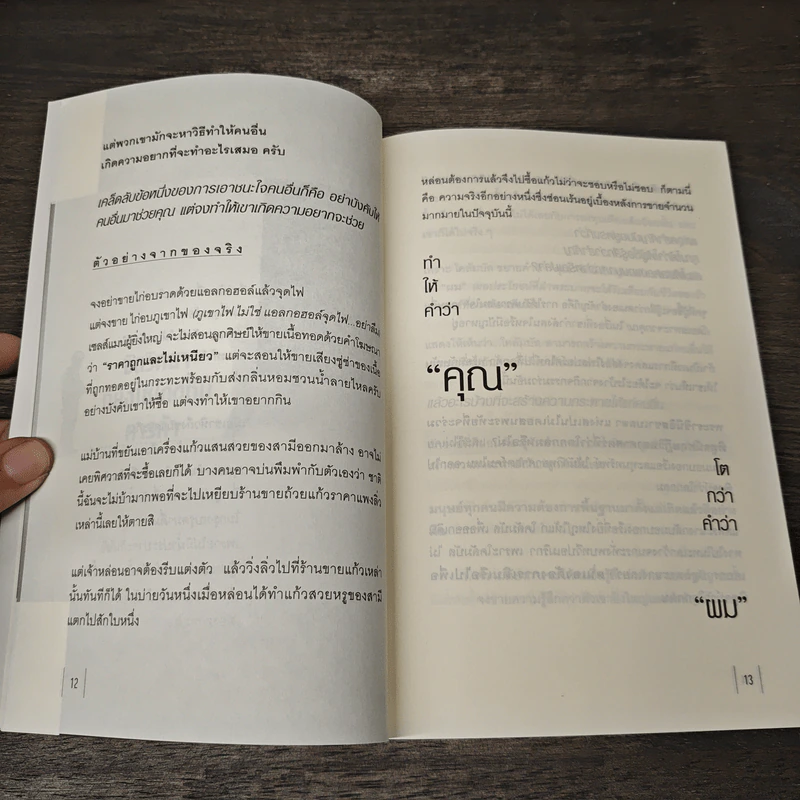 แต่พวกเขามักจะหาวิธีทำให้คนอื่น
เกิดความอยากที่จะทำอะไรเสมอ ครับ
เคล็ดลับข้อหนึ่งของการเอาชนะใจคนอื่นก็คือ อย่าบังคับให้
คนอื่นมาช่วยคุณ แต่จงทำให้เขาเกิดความอยากจะช่วย
ตัวอย่างจากของจริง
จงอย่าขายไก่อบราดด้วยแอลกอฮอล์แล้วจุดไฟ
แต่จงขาย ไก่อบภูเขาไฟ (ภูเขาไฟ ไม่ใช่ แอลกอฮอล์จุดไฟ...อย่าลืม)
เซลส์แมนผู้ยิ่งใหญ่ จะไม่สอนลูกศิษย์ให้ขายเนื้อทอดด้วยคำโฆษณา
ว่า “ราคาถูกและไม่เหนียว” แต่จะสอนให้ขายเสียงซู่ซ่าของเนื้อ
ที่ถูกทอดอยู่ในกระทะพร้อมกับส่งกลิ่นหอมชวนน้ำลายไหลครับ
อย่าบังคับให้เขาซื้อ แต่จงทำให้เขาอยากกิน
แม่บ้านที่ขยันเอาเครื่องแก้วแสนสวยของสามีออกมาล้าง อาจไม่
เคยพิศวาสที่จะซื้อเลยก็ได้ บางคนอาจบ่นพึมพำกับตัวเองว่า ชาติ
นี้ฉันจะไม่บ้ามากพอที่จะไปเหยียบร้านขายถ้วยแก้วราคาแพงลิ่ว
เหล่านี้เลยให้ตายสิ
แต่เจ้าหล่อนอาจต้องรีบแต่งตัว แล้ววิ่งลิ่วไปที่ร้านขายแก้วเหล่า
นั้นทันทีก็ได้ ในบ่ายวันหนึ่งเมื่อหล่อนได้ทำแก้วสวยหรูของสามี
แตกไปสักใบหนึ่ง
12
หล่อนต้องการแล้วจึงไปซื้อแก้วไม่ว่าจะชอบหรือไม่ชอบ ก็ตามนี่
คือ ความจริงอีกอย่างหนึ่งซึ่งซ่อนเร้นอยู่เบื้องหลังการขายจำนวน
มากมายในปัจจุบันนี้
ทำ
ให้
คำว่า
“คุณ”
โต
กว่า
คำว่า
“ผม”
13